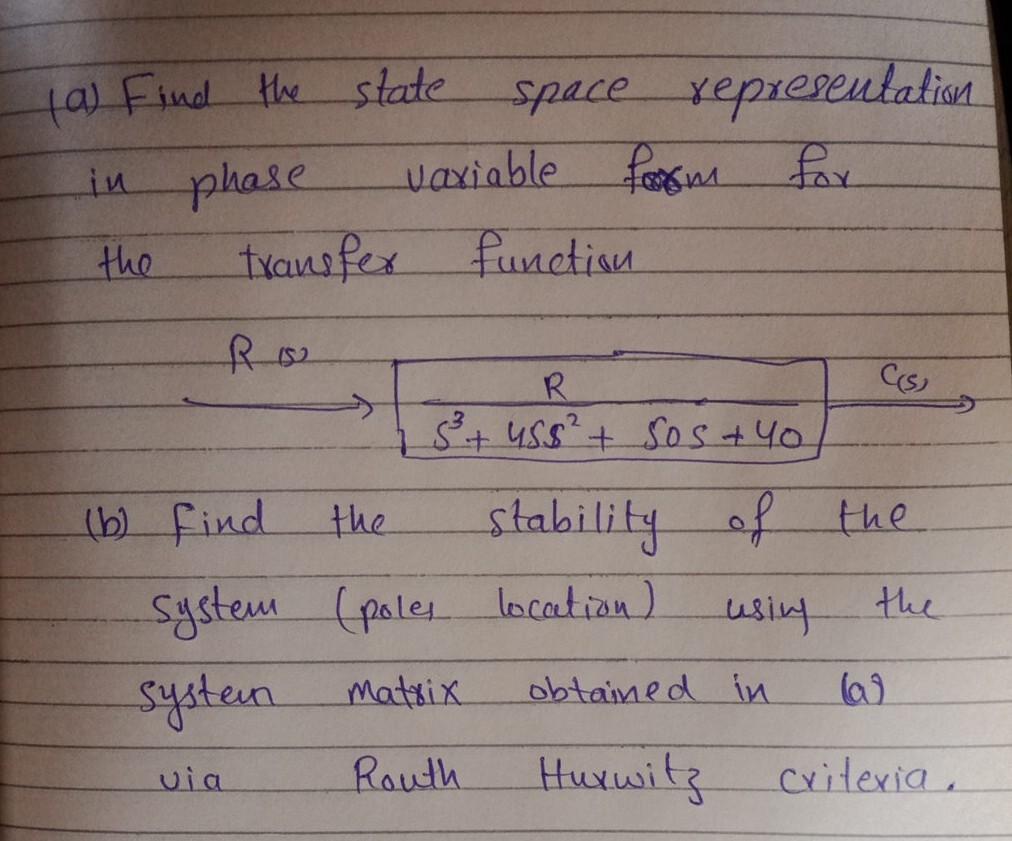 (a) Find the state space representation
in phase variable form for
the transfer function
R(s)
R
C(s)
s³ + 45s² + 50s + 40
(b) find the stability of the
system (poles location) using the
system matrix obtained in (a)
via Routh Hurwitz criteria.